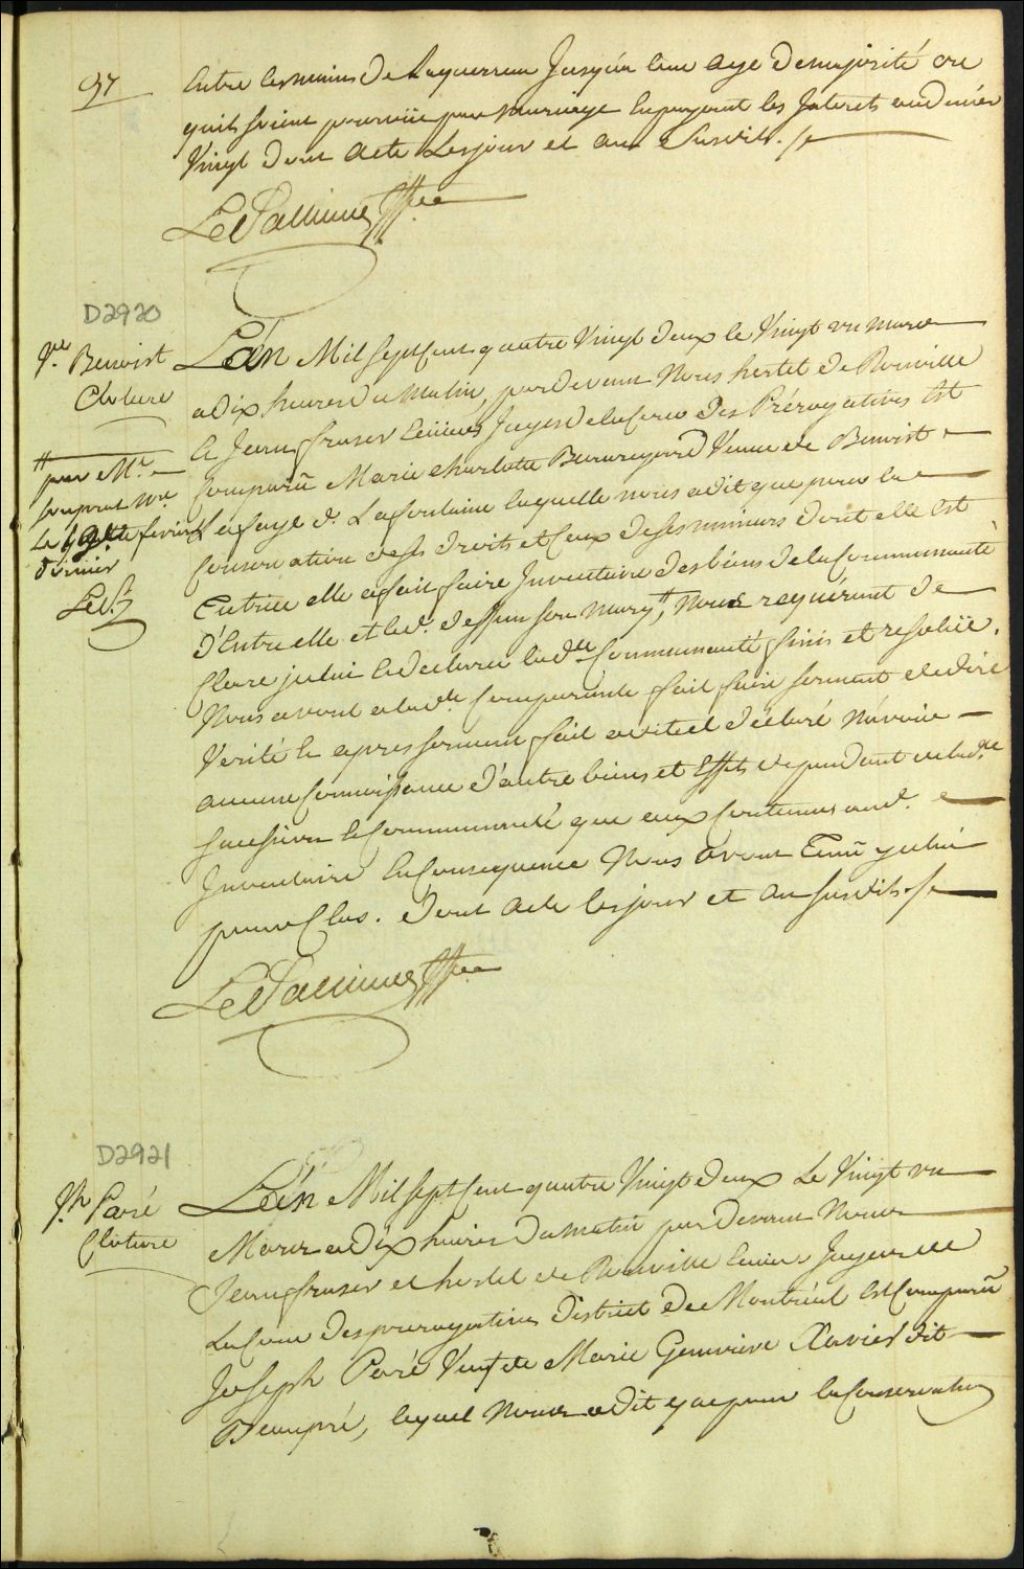 97
Entre les mains de Laquerreur Jusqu'a leur Age de majorité ou
quils soient pourvûe par mariage En payant les Interets au denier
Vingt dont Acte Les jour et an Susdits ./.
D2920
Ve. Benoist
Cloture
L'an Mil Sept Cent quatre Vingt deux le Vingt un mars
a dix heures du Matin, pardevant Nous hertel De Rouville
Et Jean fraser Ecuiers Juges de la Cour Des Prérogatives Est
Comparû Marie charlotte Veuve de Benoist
Lafaye d. Lafontaine laquelle nous a dit que pour la
Conservation de ses droits et Ceux de ses mineurs dont elle Est
Tutrice elle a fait faire Inventaire des biens de la Communauté
D'Entre elle et led. deffun son mary #, Nous requérant de
Clore jcelui Et declarer lad.e Communauté finie et resolüe.
Nous avons a lad.te Comparante fait faire serment de dire
Verité Et apres serment fait a dit et déclaré N'avoir
aucune Connoissance d'autre biens et Effets dependant de lad.te
succession Et Communauté que ceux Contenus aud.
Inventaire En Consequence Nous avons Tenû jcelui
pour Clos. dont Acte les jour et An susdits ./.
# par Mr.
Soupras Nre
Le fevrier
dernier
D2921
Jh. Paré
Cloture
L'an Mil Sept Cent quatre Vingt deux Le Vingt un
Mars a dix heures Du matin par Devant Nous
Jean fraser et hertel de Rouville Ecuiers Juges de
La Cour Des prerogatives District De Montréal Est Comparû
Joseph Paré Veuf de Marie Genevieve Xavier dit
Beaupré, lequel Nous a dit que pour la Conservation